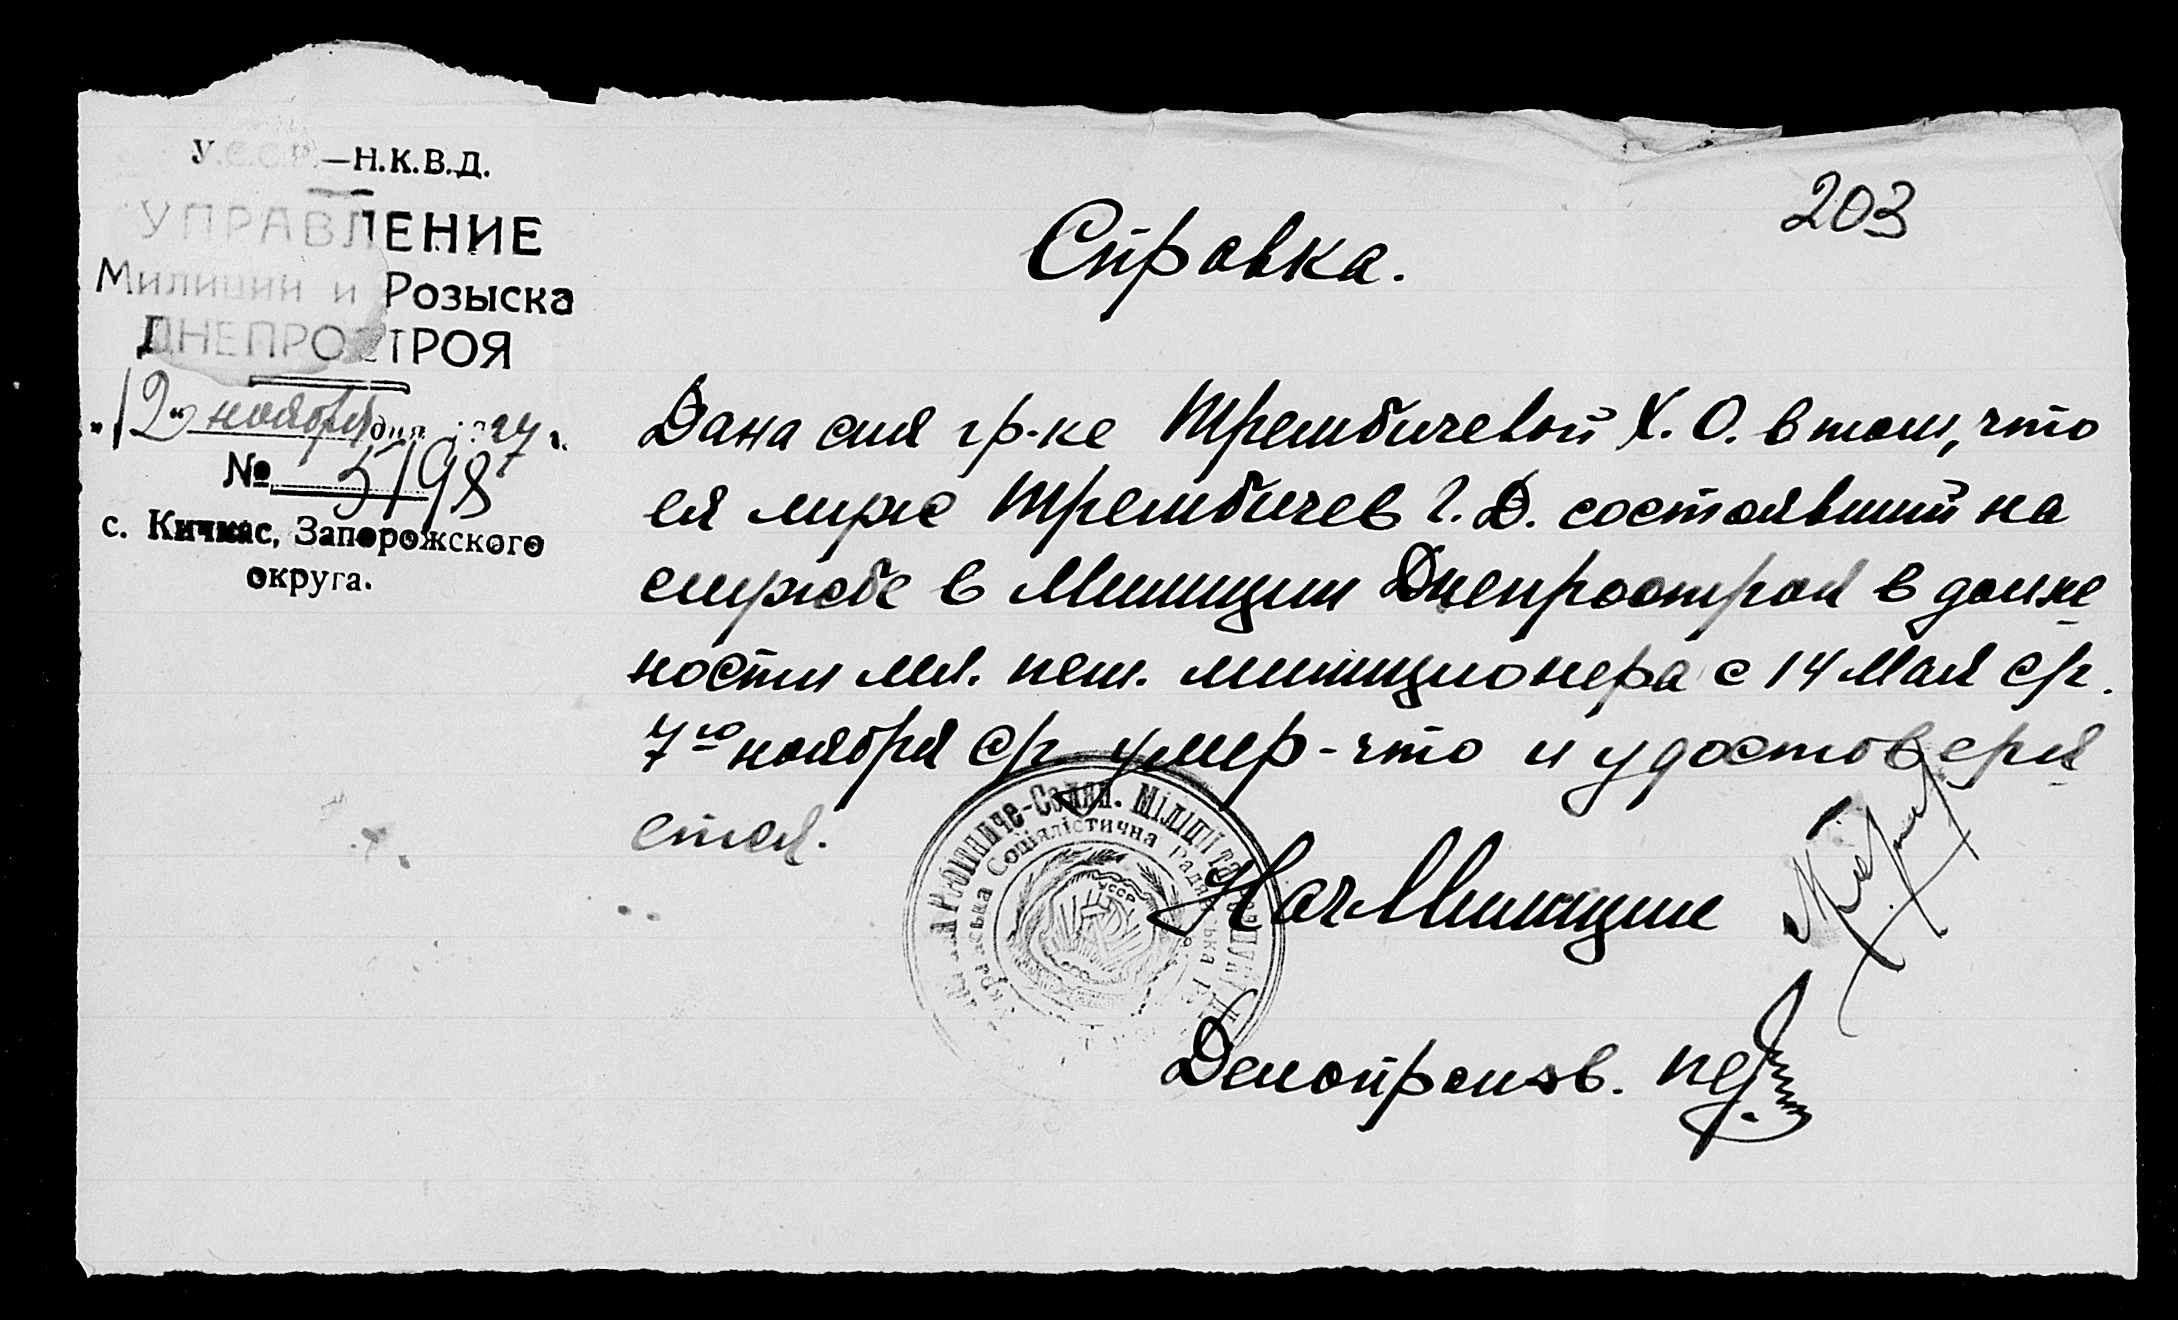 У.С.С.Р.—Н.К.В.Д.
УПРАВЛЕНИЕ
Милиции и Розыска
ДНЕПРОСТРОЯ
"12" ноября дня 1927 г.
№ 5198
с. Кичкас, Запорожского
округа.
203
Справка.
Дана сия гр-ке Трембичевой Х. О. в том, что
ея муж Трембичев Г. Д. состоявший на
службе в Милиции Днепростроя в долж
ности мл. пеш. милиционера с 14 Мая с/г.
7го ноября с/г. умер - что и удостоверя
ется.
НачМилиции
Делопроизв.
Робітниче-Селян. Міліції та Розшуку
Українська Соціялістична Радянська
УССР